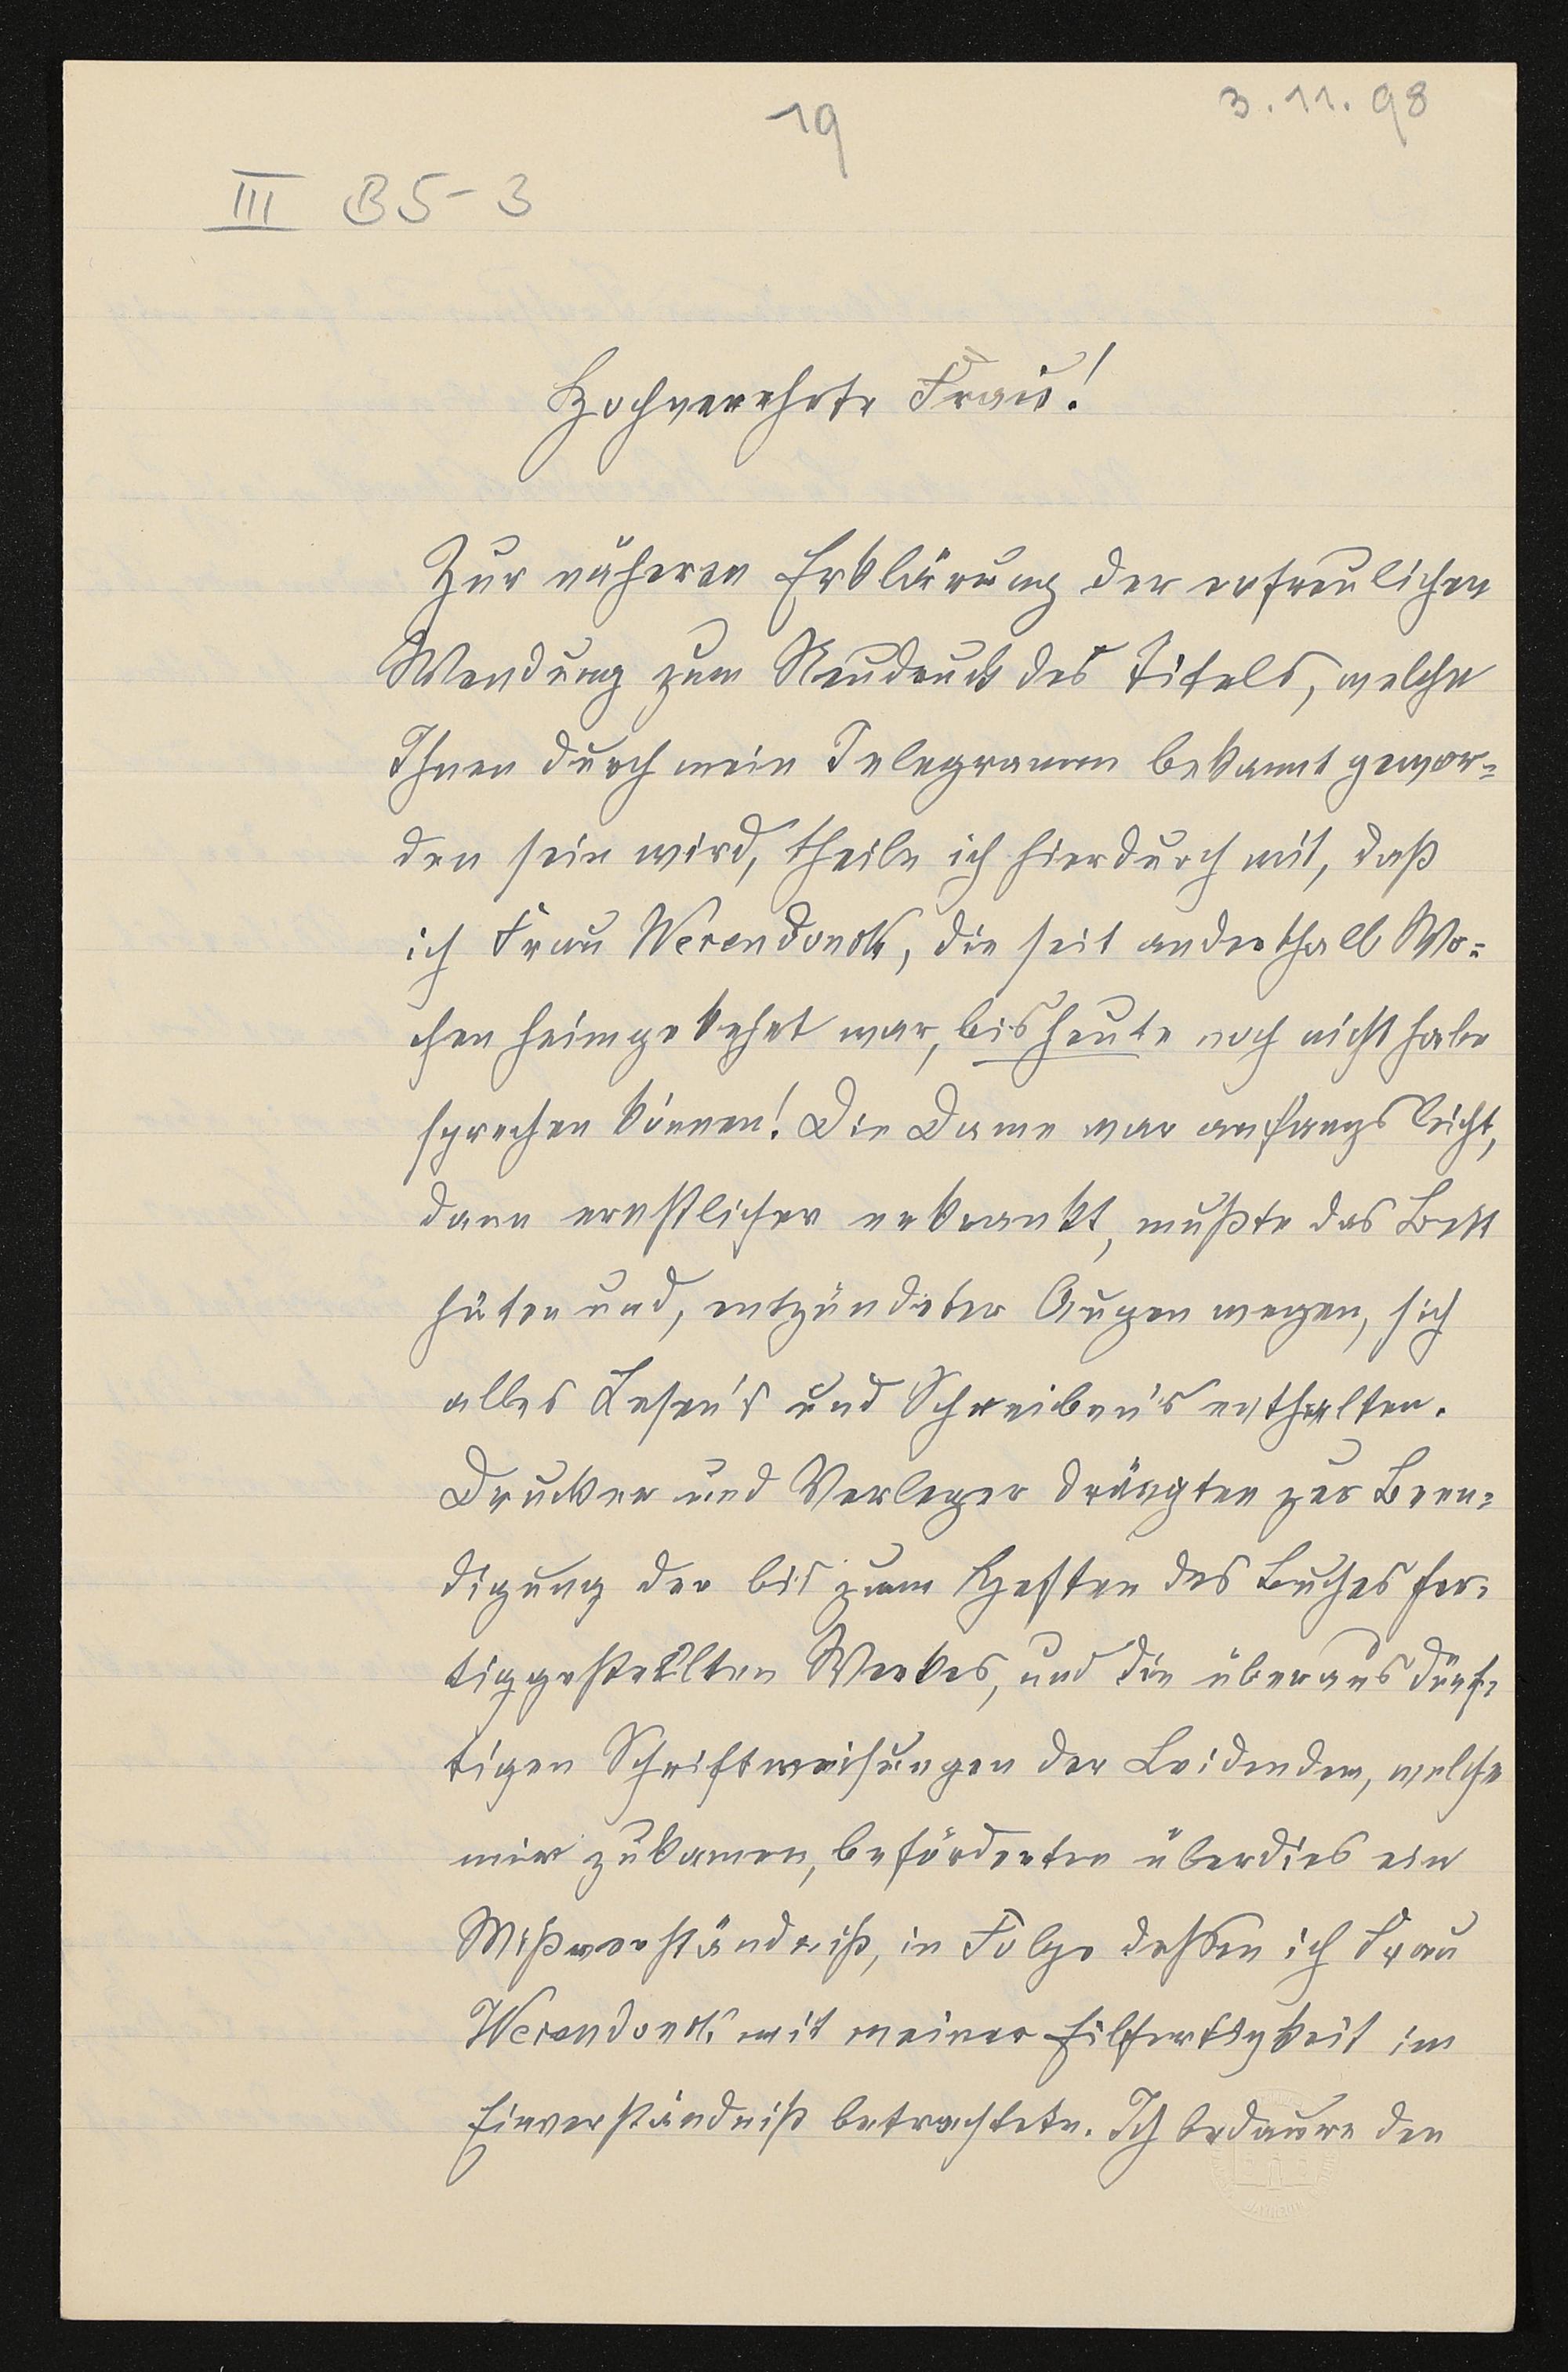 19
3.11.98
III B5-3
Hochverehrte Frau!
Zur näheren Erklärung der erfreulichen
Wendung zum Neudruck des Titels, welche
Ihnen durch mein Telegramm bekannt gewor-
den sein wird, theile ich hierdurch mit, daß
ich Frau Wesendonck, die seit anderthalb Wo-
chen heimgekehrt war, bis heute noch nicht habe
sprechen können! Die Dame war anfangs leicht,
dann ernstlicher erkrankt, mußte das Bett
hüten und, entzündeter Augen wegen, sich
alles Lesen's und Schreiben's enthalten.
Drucker und Verleger drängten zur Been-
digung der bis zum Heften des Buches fer-
tiggestellten Werkes, und die überaus dürf-
tigen Schriftweisungen der Leidenden, welche
mir zukamen, beförderten überdies ein
Mißverständniß, in Folge dessen ich Frau
Wesendonck mit meiner Eilfertigkeit im
Einverständniß betrachtete. Ich bedaure den